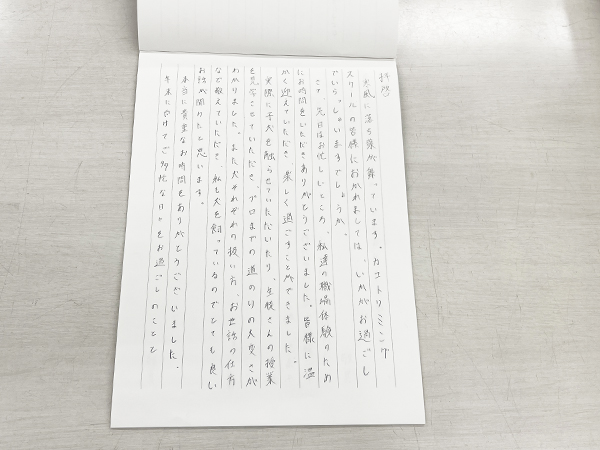 拝啓
木風に落ち葉が舞っています。カエトリミング
スクールの皆様におかれましては、いかがお過ごし
でいらっしゃいますでしょうか。
さて、先日はお忙しいところ、私達の職場体験のため
にお時間をいただきありがとうございました。皆様に温
かく迎えていただき、楽しく過ごすことができました。
実際に子犬を触らせていただいたり、生徒さんの授業
を見学させていただき、プロまでの道のりの大変さが
わかりました。また犬それぞれの扱い方、お世話の仕方
なで教えていただき、私も犬を飼っているのでとても良い
お話が聞けたと思います。
本当に貴重なお時間をありがとうございました。
年末にかけてご多忙な日々をお過ごしのことと